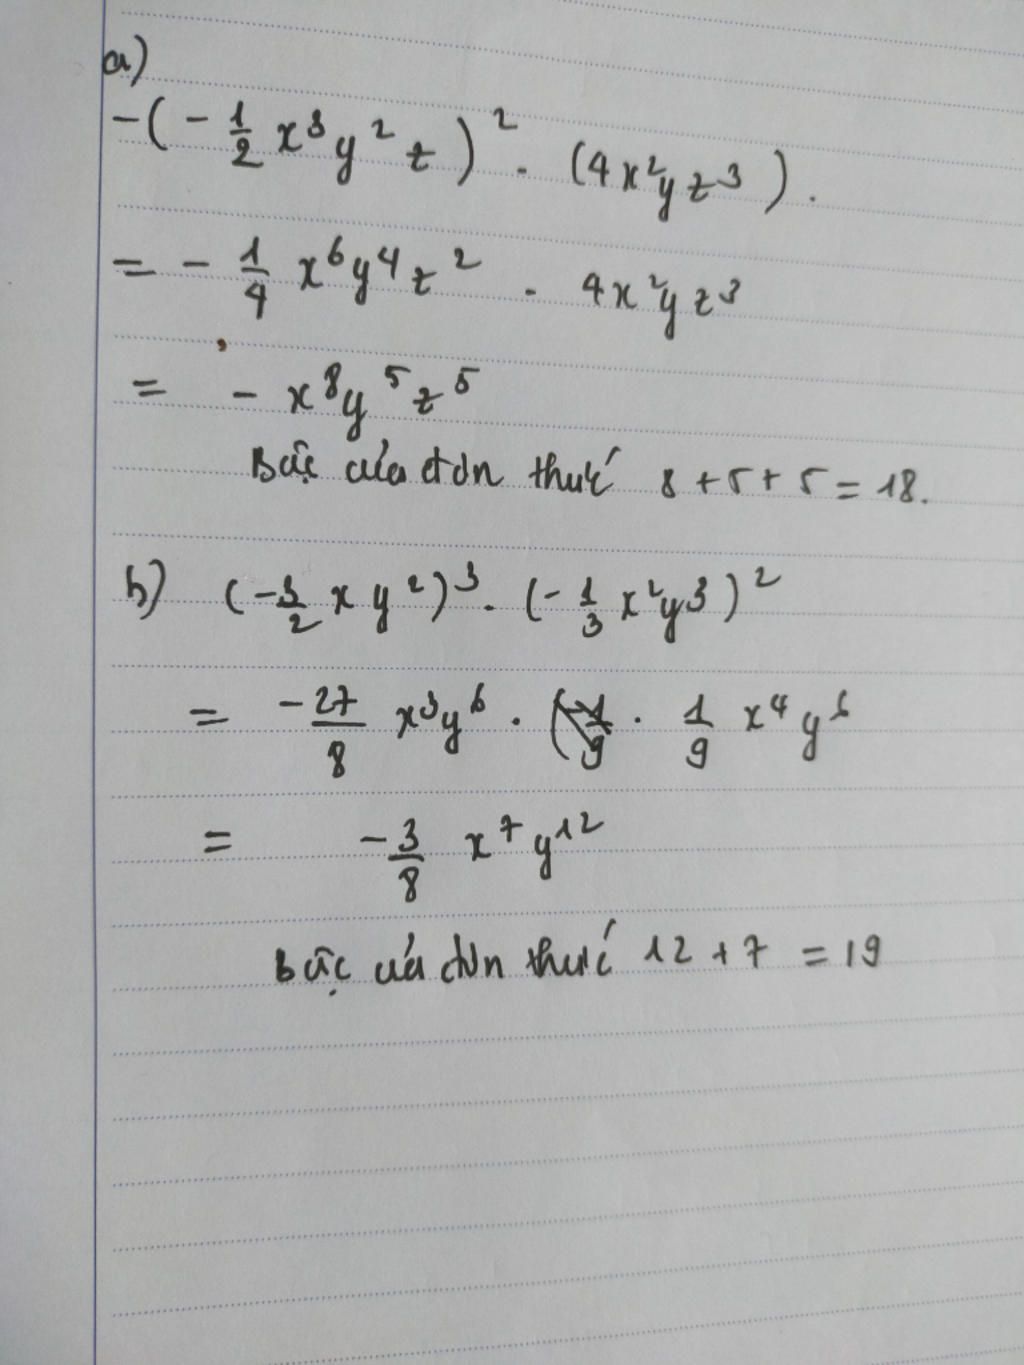 a)
-(-1/2 x³y²z)² . (4x²yz³).
= - 1/4 x⁶y⁴z² . 4x²yz³
= - x⁸y⁵z⁵
Bậc của đơn thức 8+5+5=18.
b) (-3/2 x y²)³. (-1/3 x²y3)²
= -27/8 x³y⁶ . 1/9 x⁴y⁶
= -3/8 x⁷ y¹²
Bậc của đơn thức 12+7 =19